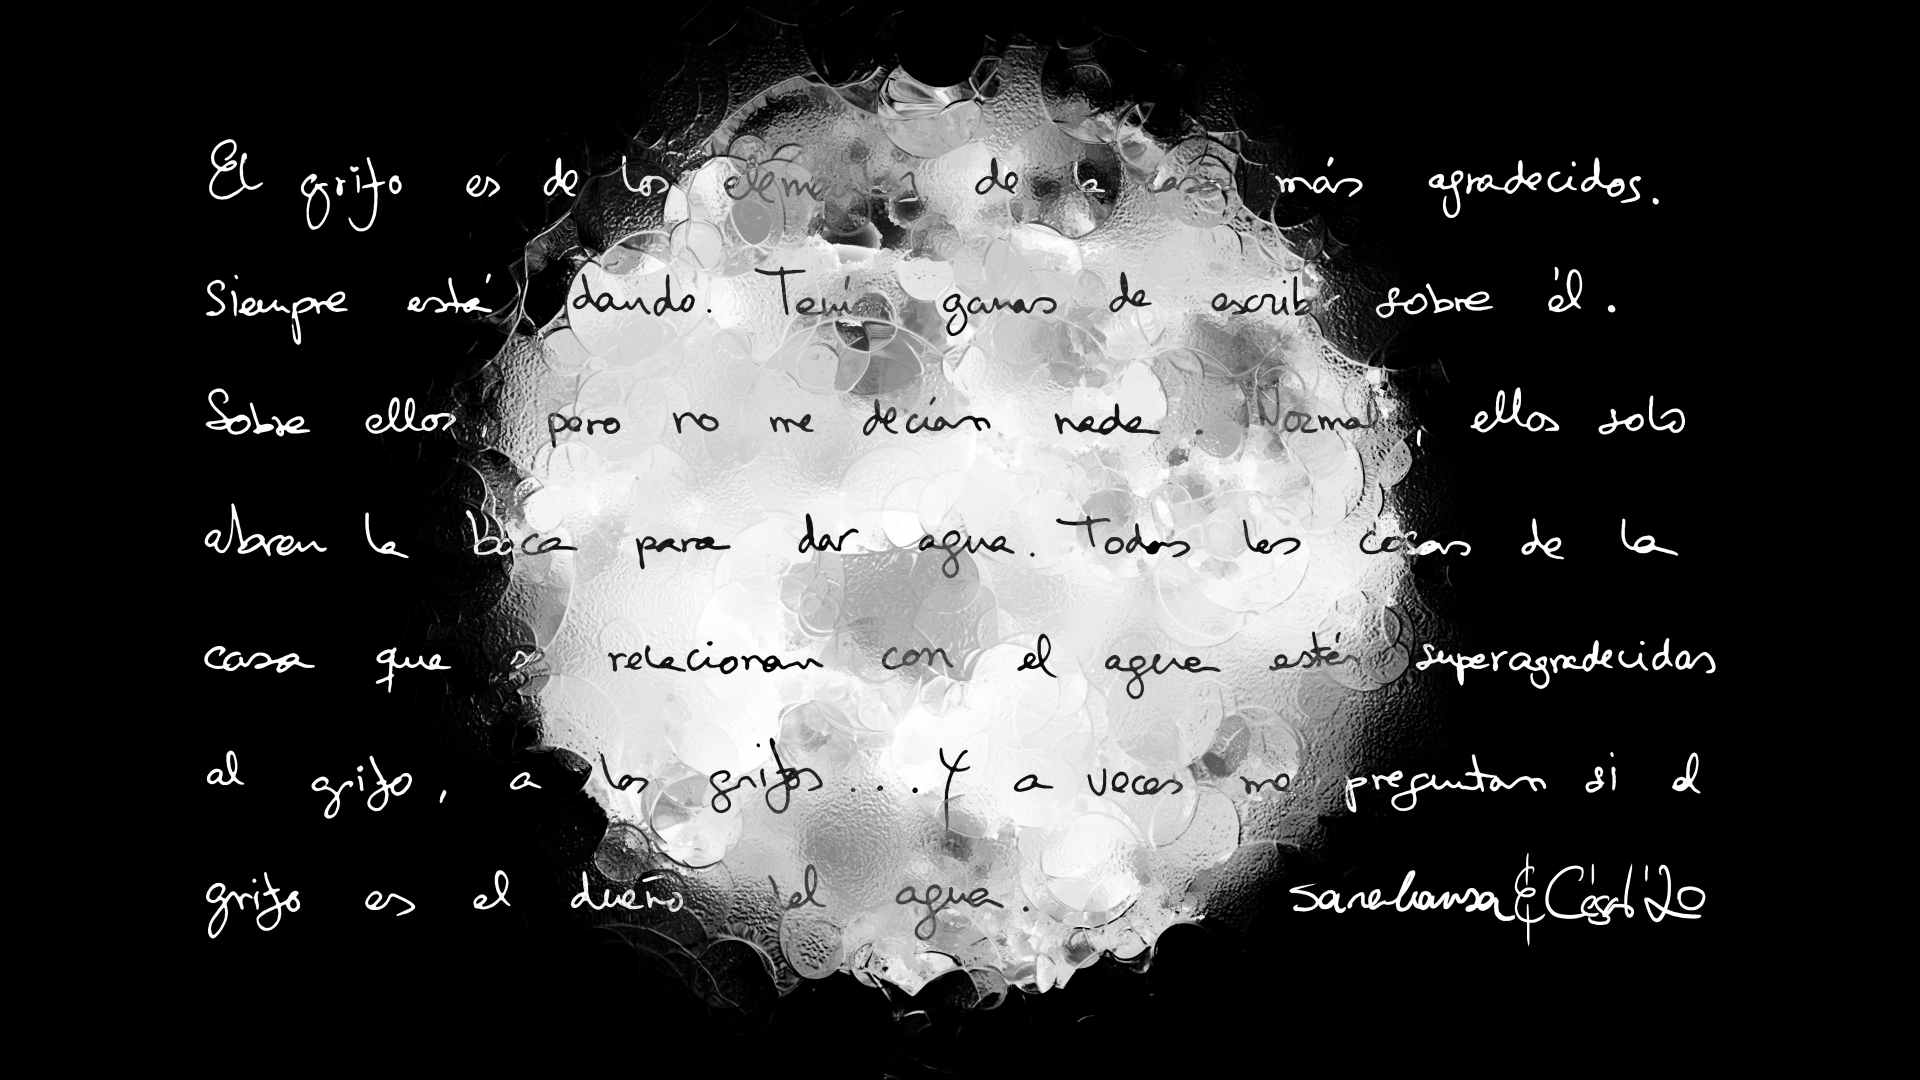 El grifo es de los elementos de la casa más agradecidos.
Siempre está dando. Tenía ganas de escribir sobre él.
Sobre ellos, pero no me decían nada. Normal, ellos solo
abren la boca para dar agua. Todas las cosas de la
casa que se relacionan con el agua están superagradecidas
al grifo, a los grifos... Y a veces me preguntan si el
grifo es el dueño del agua.
&César'20